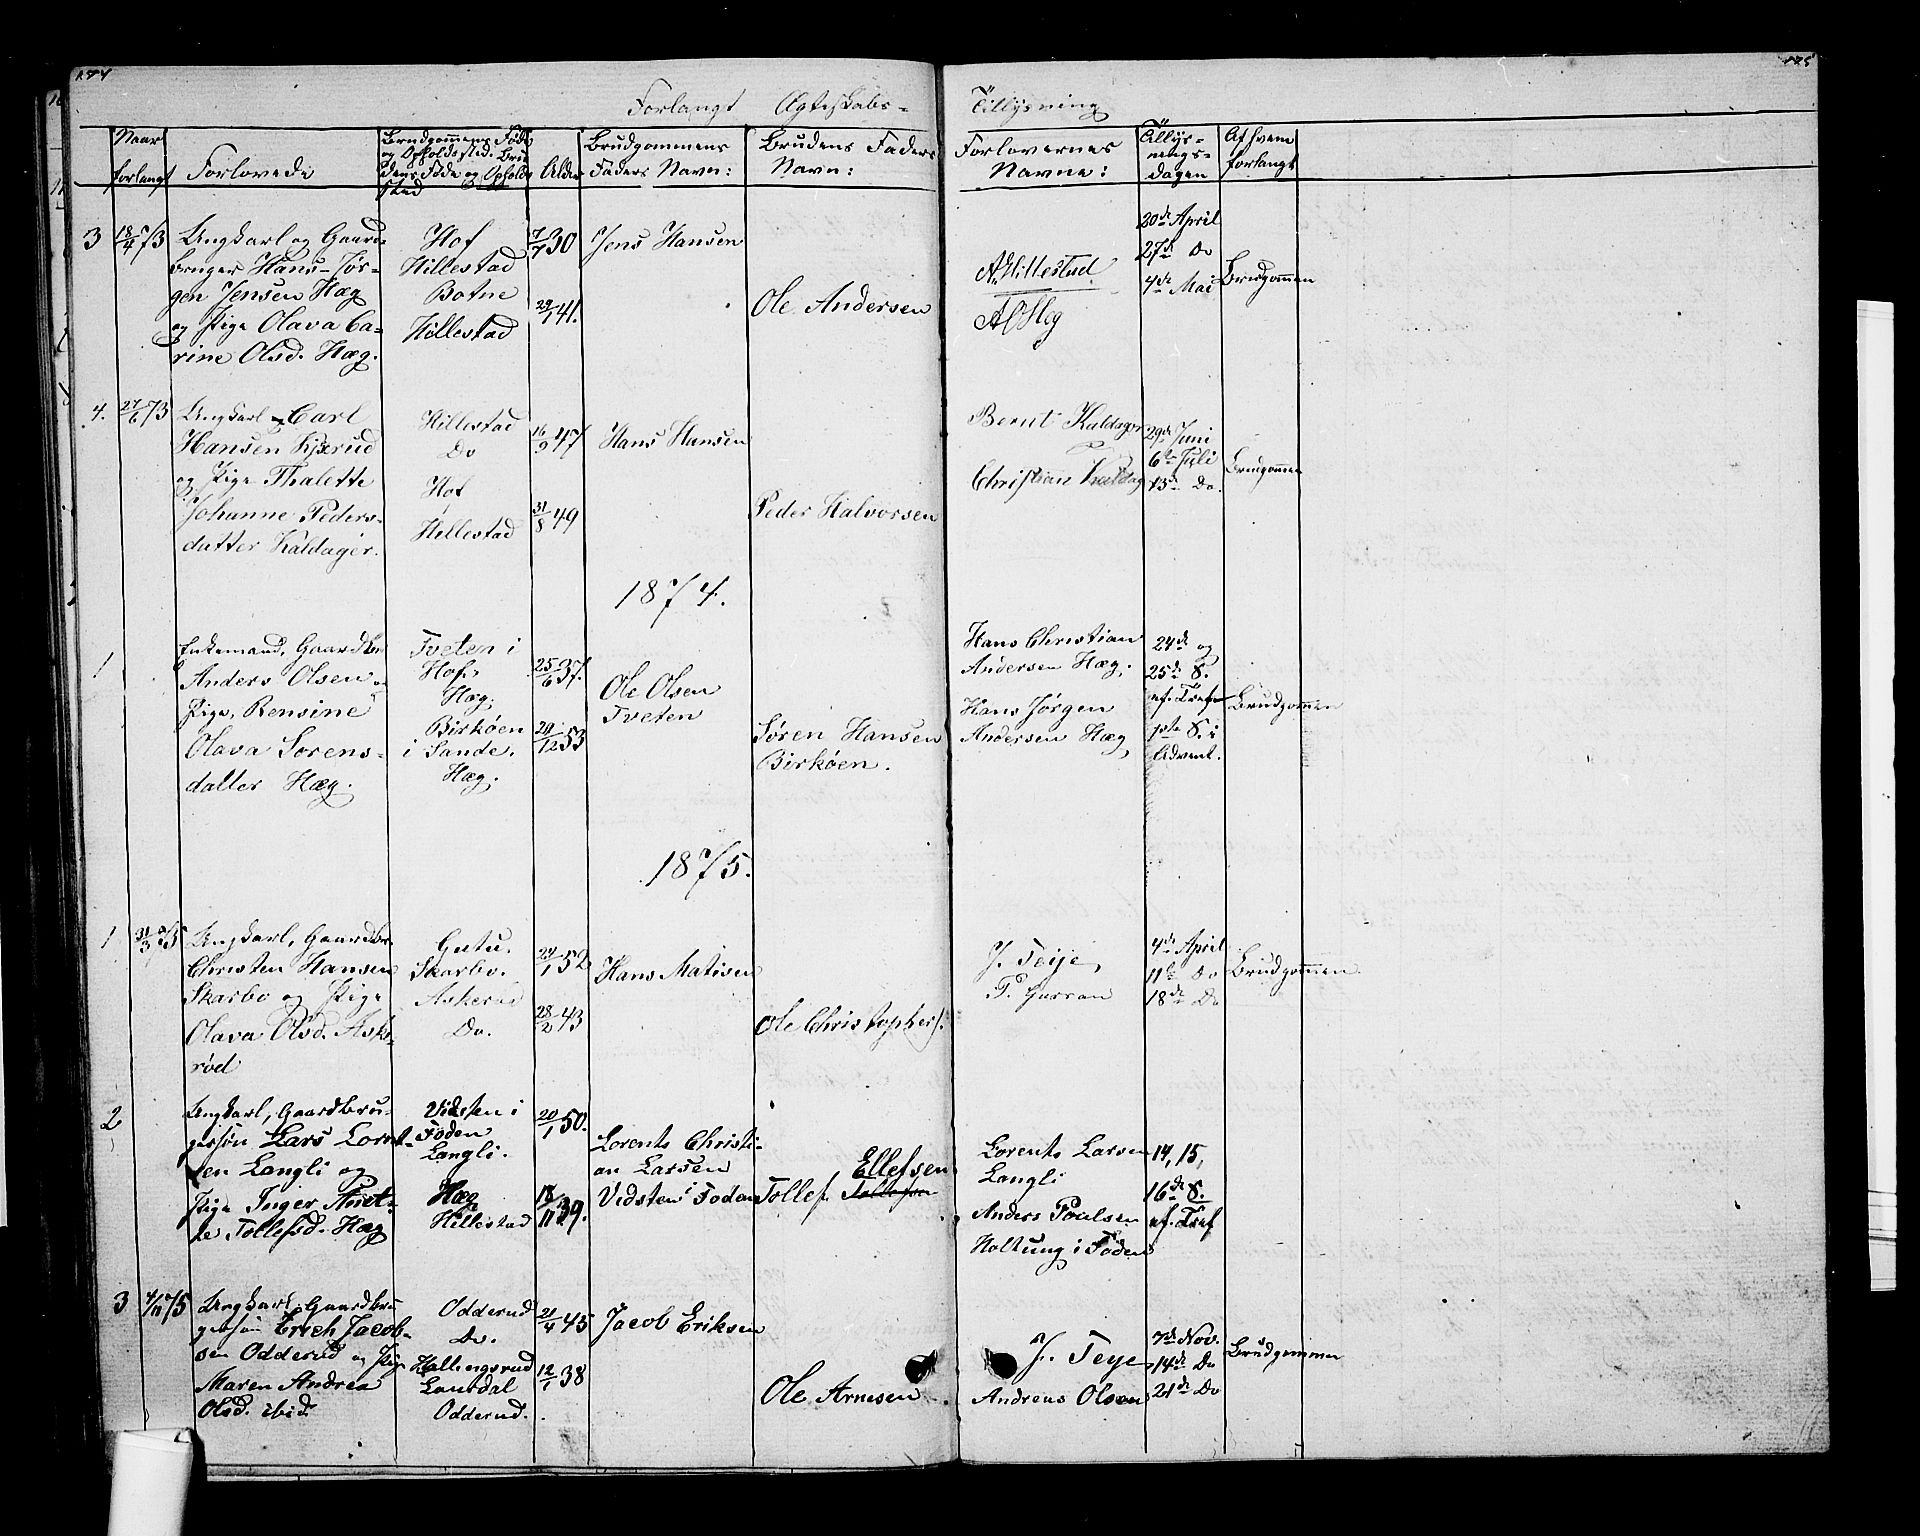 174
175
Forlangt Ægteskabs- Tillysning
Naar forlangt
Forlovede
Brudgommens Føde og Opholdssted. Brudens Føde og Opholdssted
Alder
Brudgommens Faders Navn:
Brudens Faders Navn:
Forlovernes Navne:
Tillysningsdagen
Af hvem forlangt
3
18/4 73
Ungkarl og Gaard-
bruger Hans Jør-
gen Jensen Hæg
og Pige Olava Ca-
rine Olsd. Hæg.
Hof
Hillestad
Botne
Hillestad
7/7 30
29/1 41.
Jens Hansen
Ole Andersen
A. Hillestad
20de April
27de Do
4de Mai
Brudgommen
4.
27/6 73
Ungkarl Carl
Hansen Kjærud
og Pige Thalette
Johanne Peders-
datter Kaldager.
Hillestad
Do
Hof
Hillestad
16/9 47
31/8 49
Hans Hansen
Peder Halvorsen
Bernt Kaldager
Christian Kaldag
29de Juni
6te Juli
13de Do.
Brudgommen
1874.
1
Enkemand, Gaardbr.
Anders Olsen og
Pige, Bensine
Olava Sørens-
datter Hæg.
Tveten i
Hof.
Hæg.
Birkøen
i Sande.
Hæg.
25/6 37.
29/12 53
Ole Olsen
Tveten
Søren Hansen
Birkøen.
Hans Christian
Andersen Hæg.
Hans Jørgen
Andersen Hæg
24de og
25de S.
ef. Tref
1ste S. i
Advent.
Brudgommen
1875.
1
31/3 75
Ungkarl, Gaardbr.
Christen Hansen
Skarbo og Pige
Olava Olsd. Aske-
rød
Skarbo.
Askerud
Do.
24/1 52
28/2 43
Hans Matisen
Ole Christophers.
J. Teije,
4de April
11te Do
18de Do
Brudgommen.
2
Ungkarl, Gaardbru-
gersøn Lars Lorent-
sen Langli og
Pige Inger Anet-
te Tollefsd. Hæg
Vidsten i
Foden
Langli.
Hæg
Hillestad
20/1 50.
18/11 39.
Lorents Christi-
an Larsen
Vidsten i Foden
Ellefsen
Tollef Tollefsen
Lorents Larsen
Langli
Anders Poulsen
Holtung i Foden
14, 15,
16de S.
ef. Tref
3
4/11 75
Ungkarl, Gaardbru
gersøn Erich Jacob-
sen Odderud og Pige
Maren Andrea
Olsd. ibid.
Odderud
Do.
Hallingsrud
Laurdal
Odderud.
21/4 45
12/1 38
Jacob Eriksen
Ole Arnesen
J. Teye
Andreas Olsen
7de Nov.
14de Do
21de Do
Brudgommen